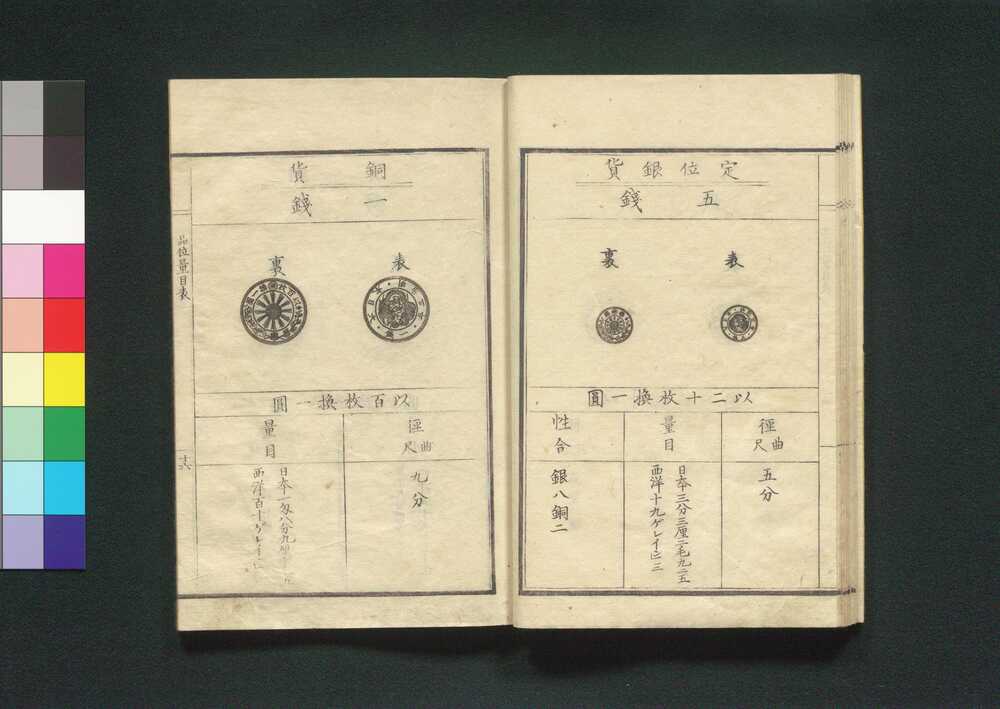 定位銀貨
五錢
表
裏
以二十枚換一圓
徑 曲尺
五分
量目
日本三分三厘二毛九二五
西洋十九ゲレイン三
性合
銀八銅二
銅貨
一錢
表
裏
以百枚換一圓
徑 曲尺
九分
量目
日本一匁八分九
西洋百十ゲレイン
品位量目表
十六